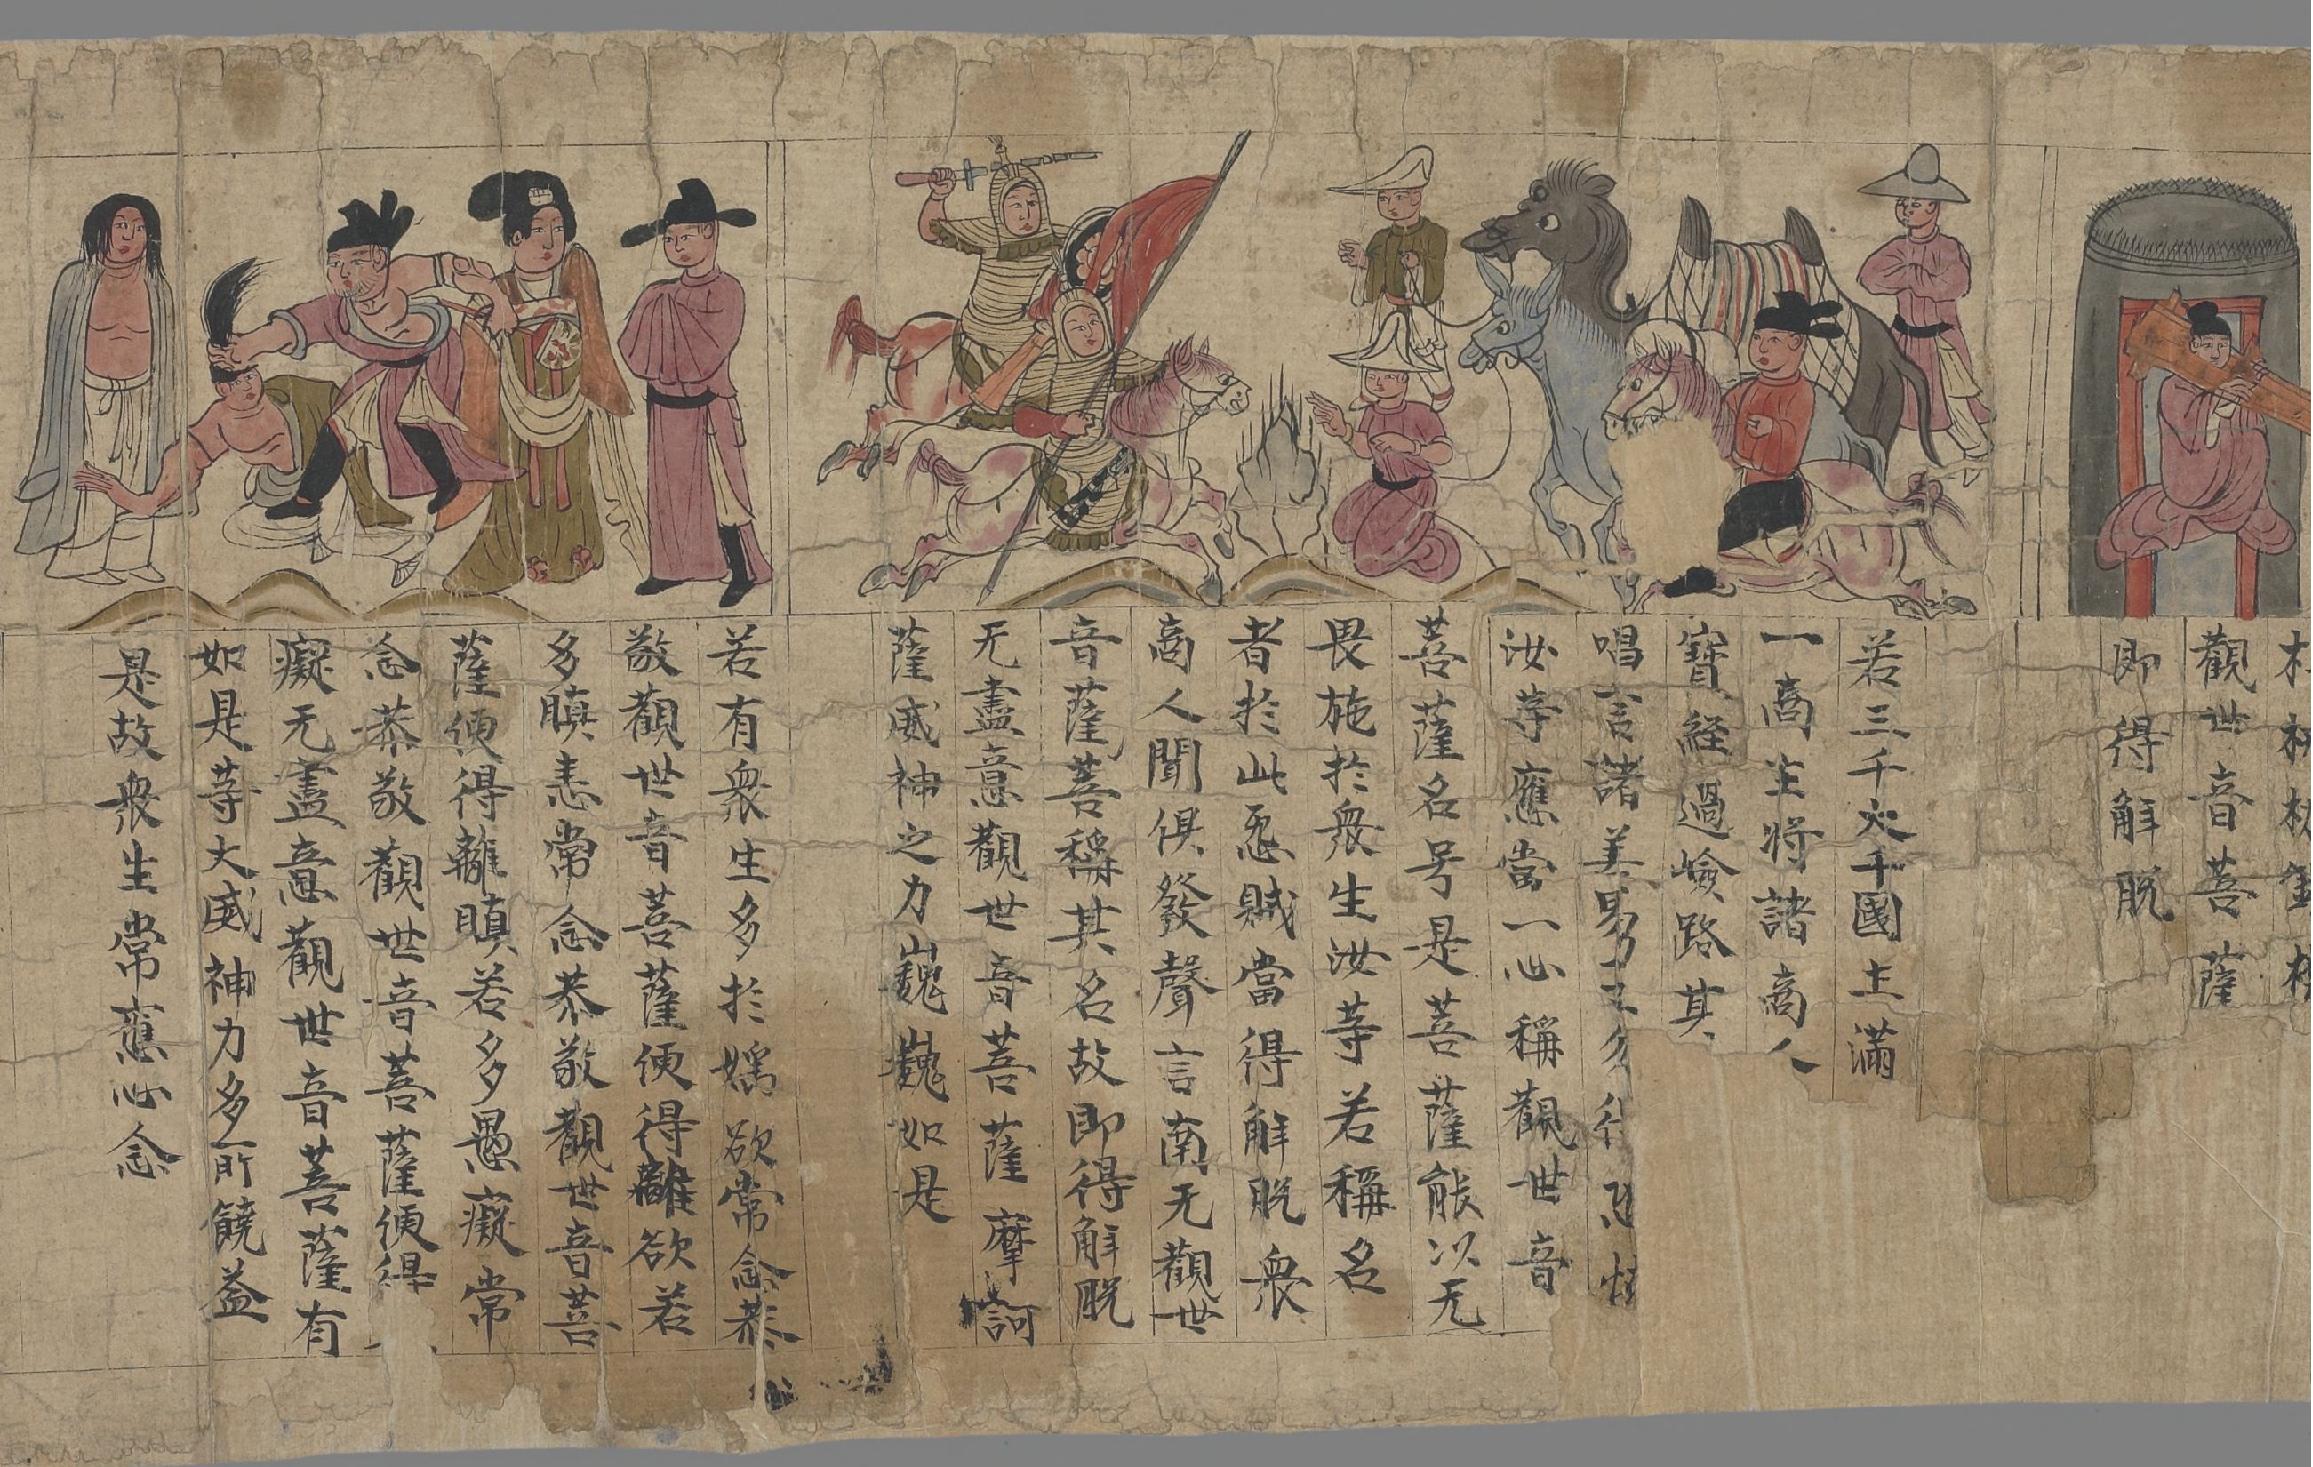 觀世音菩薩
即得解脫
若三千大千國土滿
一商主將諸商人
寶經過嶮路其
唱言諸善男子
汝等應當一心稱觀世音
菩薩名号是菩薩能以无
畏施於衆生汝等若稱名
者於此惡賊當得解脫衆
商人聞俱發聲言南无觀世
音薩菩稱其名故即得解脫
无盡意觀世音菩薩摩訶
薩威神之力巍巍如是
若有衆生多於婬欲常念恭
敬觀世音菩薩便得離欲若
多瞋恚常念恭敬觀世音菩
薩便得離瞋若多愚癡常
念恭敬觀世音菩薩便得
癡无盡意觀世音菩薩有
如是等大威神力多所饒益
是故衆生常應心念